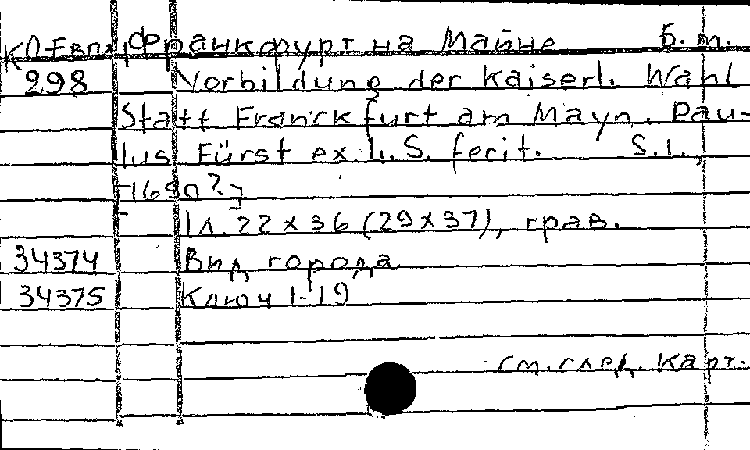 К0 Евпл, Франкфурт на Майне Б. т.
298 Vorbildung der Kaiserl. Wahl
Statt Franckfurt am Mayn. Pau-
lus Fürst ex. L. S. fecit. S. l.,
[1650?]
1 л. 22 x 36 (29 x 37), грав.
34374 Вид города
34375 Ключ 1-19
см. след. карт.